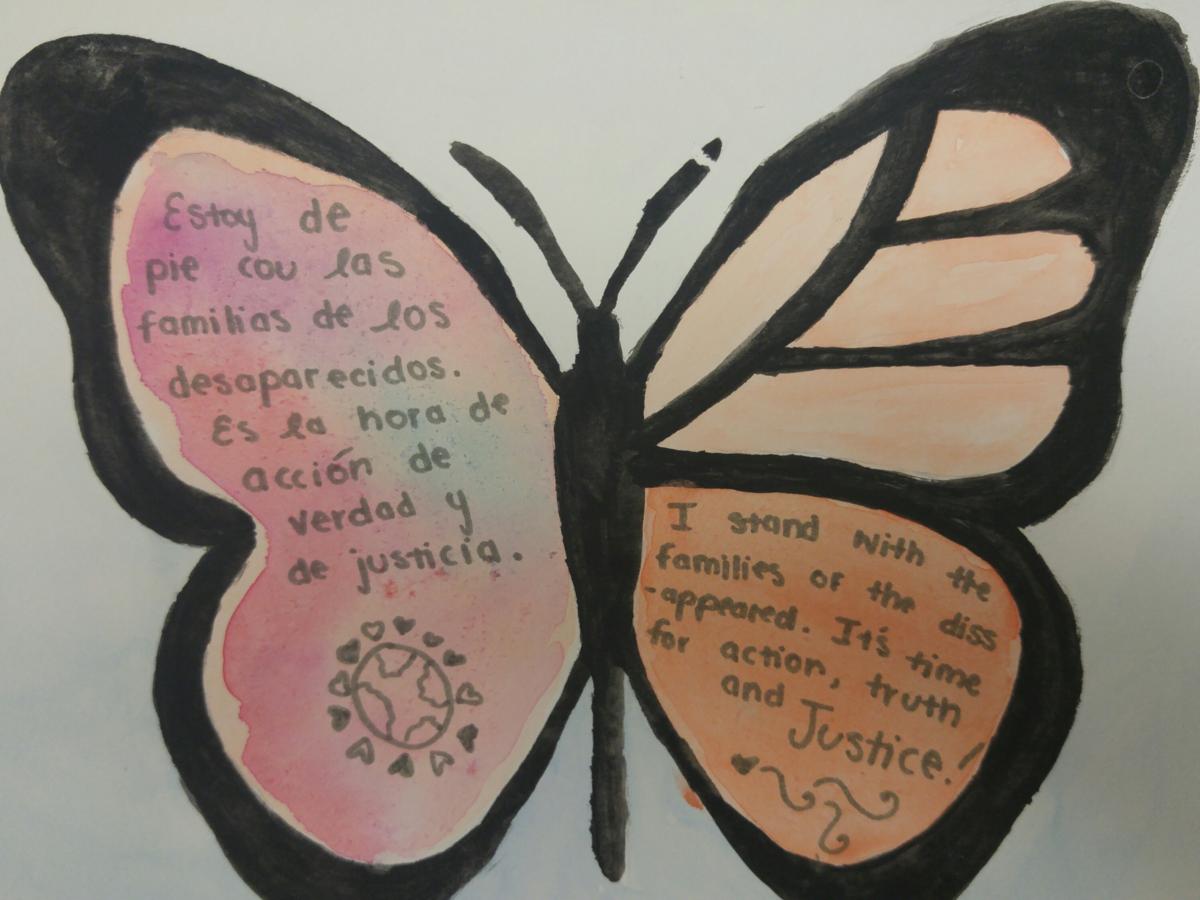 Estoy de
pie cou las
familias de los
desaparecidos.
Es la hora de
acción de
verdad y
de justicia.
I stand with the
families of the diss
-appeared. It's time
for action, truth
and Justice!